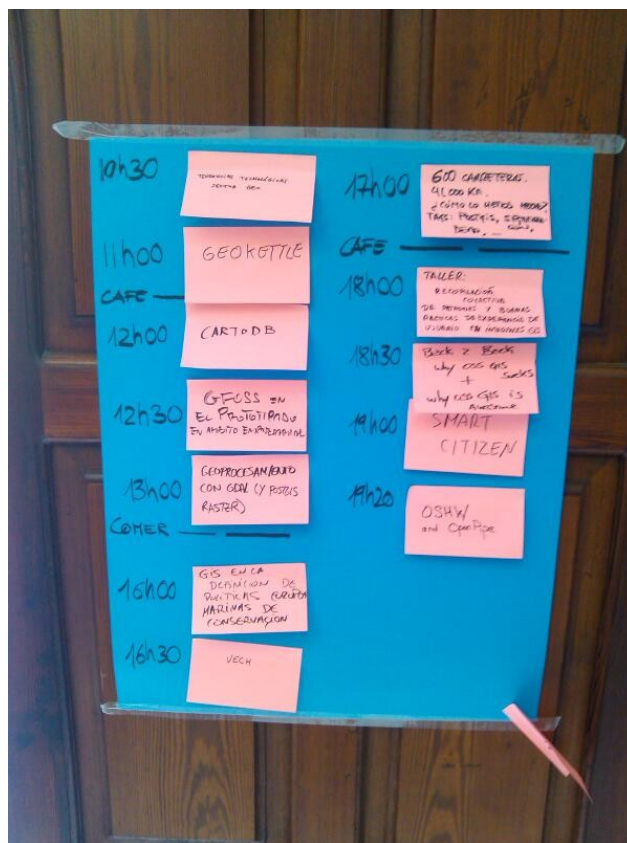 10h30
TENDENCIAS TECNOLÓGICAS
SECTOR GEO
11h00
GEOKETTLE
CAFE
12h00
CARTODB
12h30
GFOSS EN
EL PROTOTIPADO
EN AMBITO EMPRESARIAL
13h00
GEOPROCESAMIENTO
CON GDAL (Y POSTGIS
RASTER)
COMER
16h00
GIS EN LA
DEFINICION DE
POLITICAS
MARINAS DE
CONSERVACION
16h30
VECH
17h00
600 CARRETERAS.
41.000 KM.
¿CÓMO LO HEMOS HECHO?
TAGS: POSTGIS,
CAFE
18h00
TALLER:
RECOPILACIÓN
COLECTIVA
DE PATRONES Y BUENAS
PRÁCTICAS DE EXPERIENCIA DE
USUARIO EN
18h30
Back 2 Back
why OSS GIS
Sucks
+
why OSS GIS is
Awesome
19h00
SMART
CITIZEN
19h20
OSHW
and OpenPipe